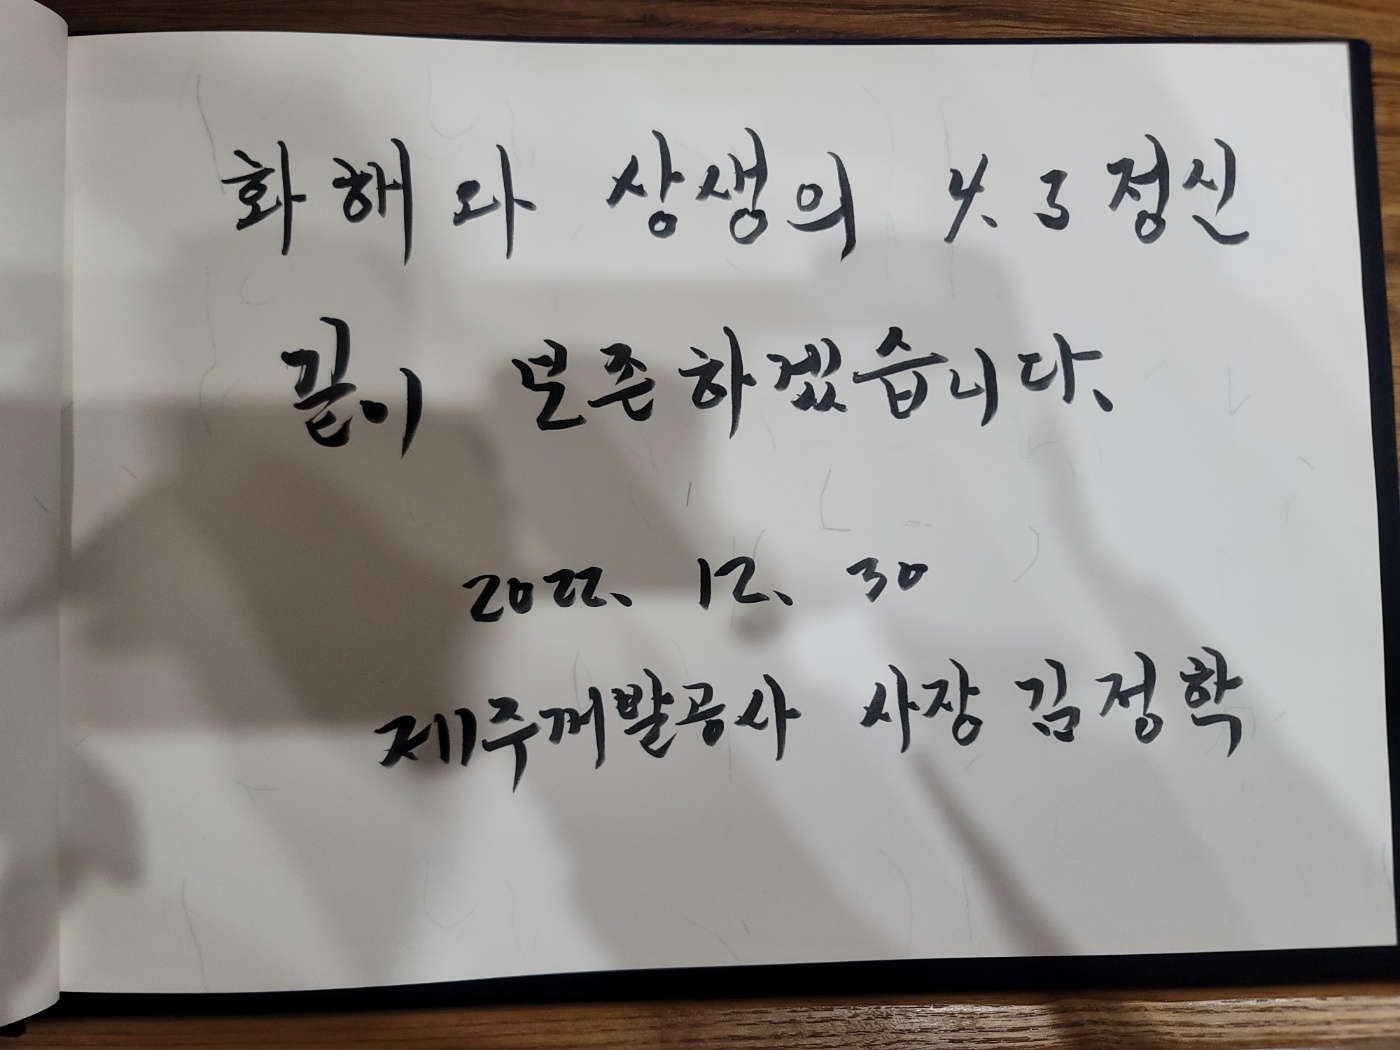 화해와 상생의 4.3정신
끝이 보존하겠습니다.
2022. 12. 30
제주개발공사 사장 김정학